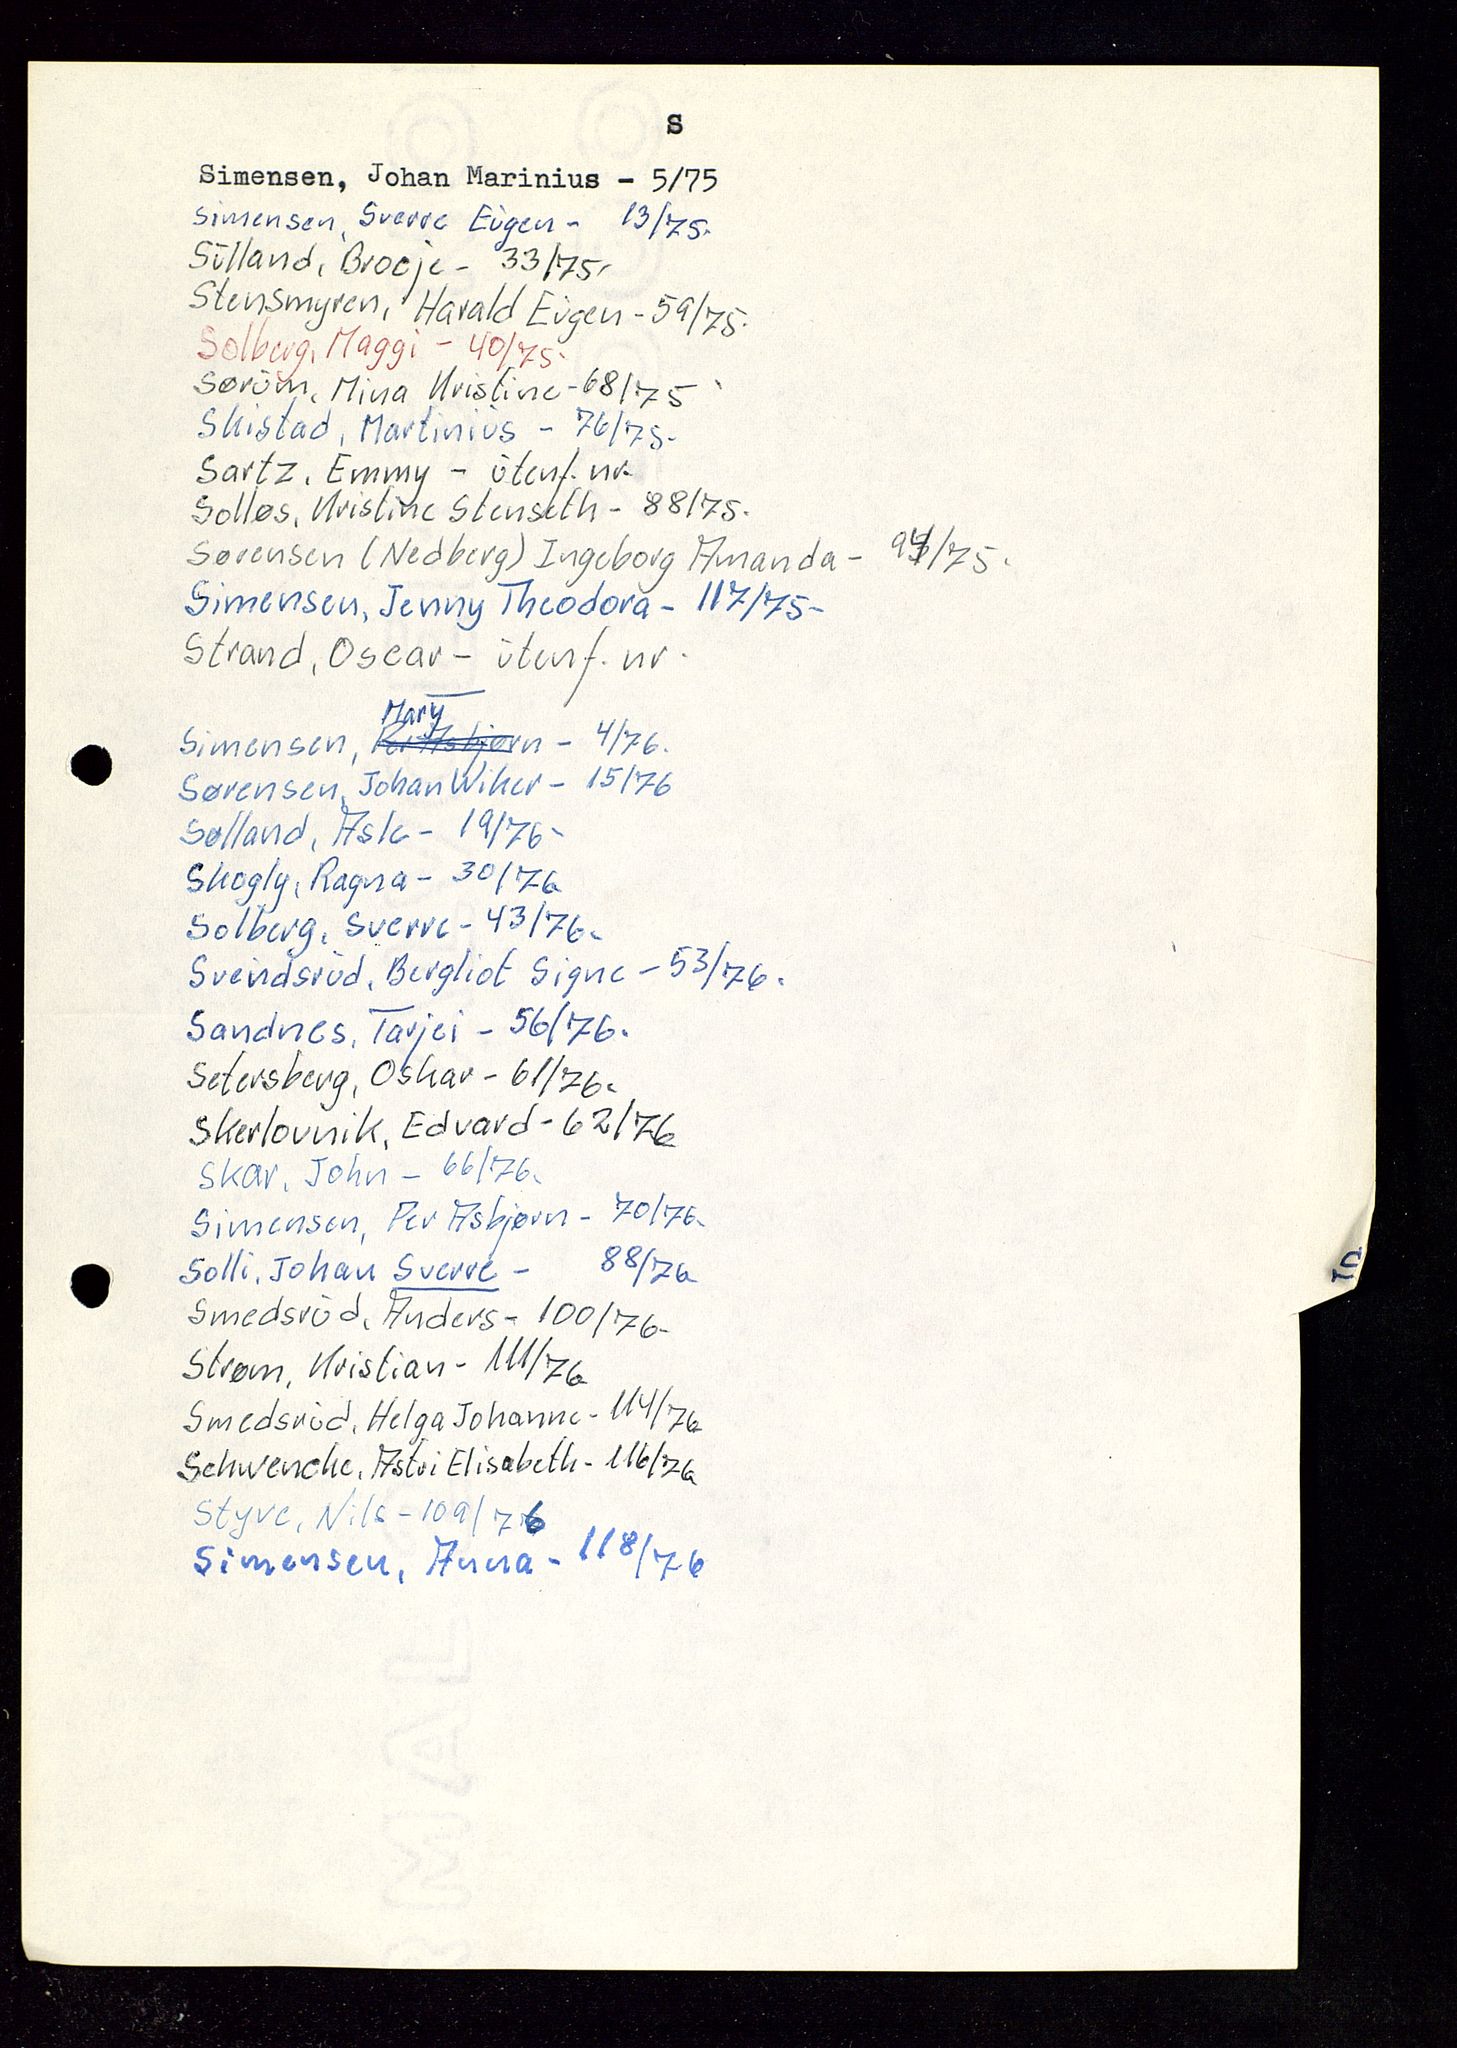 S
Simensen, Johan Marinius - 5/75
Simensen, Sverre Eugen - 13/75.
Sulland, Brocje - 33/75.
Stensmyren, Harald Eugen - 59/75.
Solberg, Maggi - 40/75.
Sørum, Mina Kristine - 68/75
Skistad, Martinius - 76/75.
Sartz, Emmy - utenf. nr.
Solløs, Kristine Stenseth - 88/75.
Sørensen (Nedberg) Ingeborg Amanda - /75.
Simensen, Jenny Theodora - 117/75-
Strand, Oscar - utenf. nr.
Mary
Simensen, Per Asbjørn - 4/76.
Sørensen, Johan Wiker - 15/76
Sølland, Asle - 19/76-
Skogly, Ragna - 30/76
Solberg, Sverre - 43/76.
Sveindsrud, Bergliot Signe - 53/76.
Sandnes, Tarjei - 56/76.
Setersberg, Oskar - 61/76.
Skerlovnik, Edvard - 62/76
Skar, John - 66/76.
Simensen, Per Asbjørn - 70/76.
Solli, Johan Sverre - 88/76
Smedsrud, Anders - 100/76-
Strøm, Kristian - 111/76
Smedsrud, Helga Johanne - 114/76
Schwencke, Astri Elisabeth - 116/76
Styve, Nils - 109/76
Simensen, Anna - 118/76